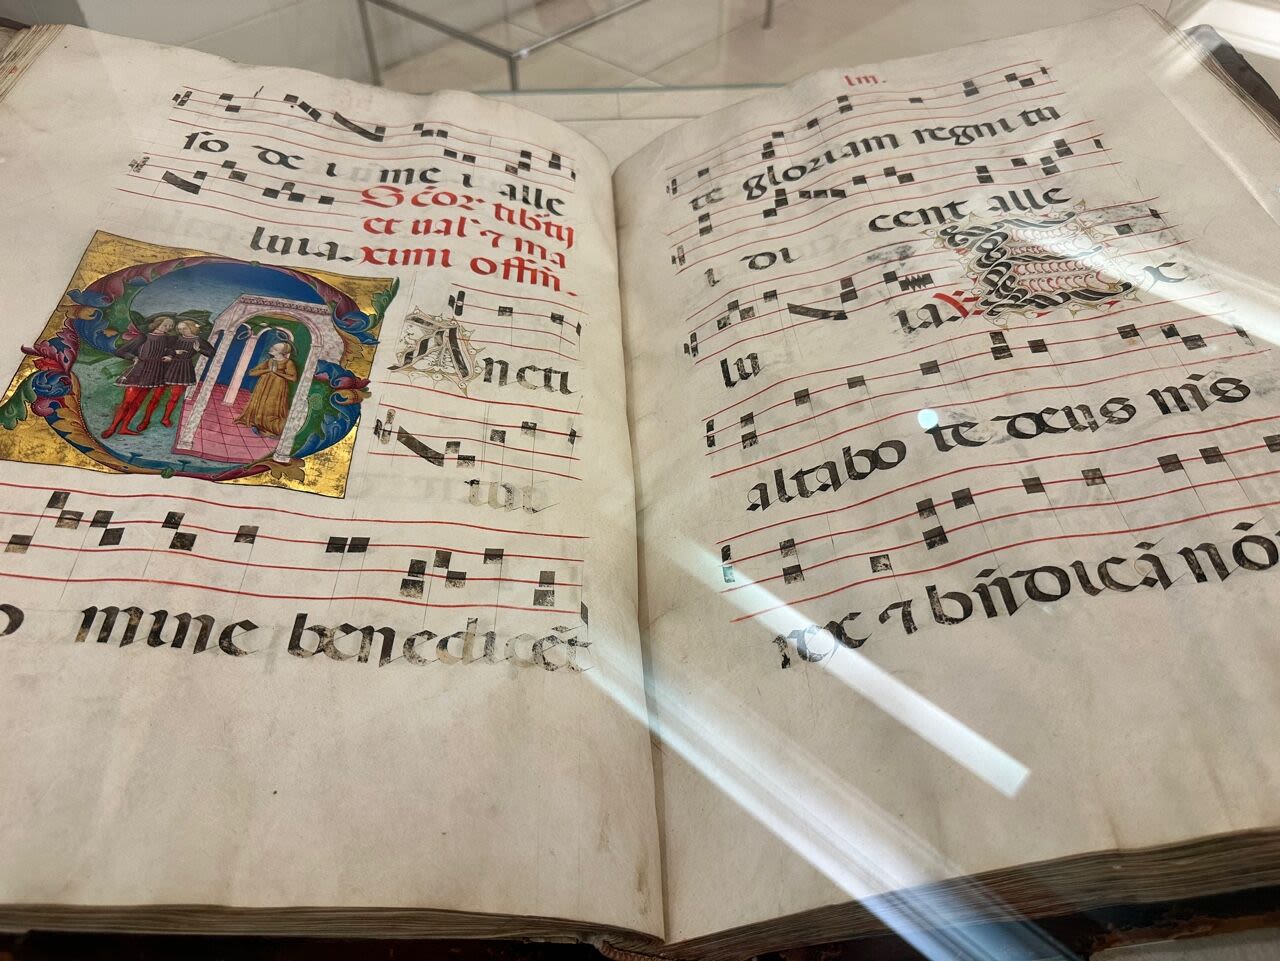 lm.
so de i me i alle
Scor tib'tij
et ual' ⁊ ma
luia. ximi offm̄.
Ancti
mine benedicēt
te gloriam regni tu
i di cent alle
lu ia. E x
altabo te deus m̄s
rex ⁊ bn̄dicā nō